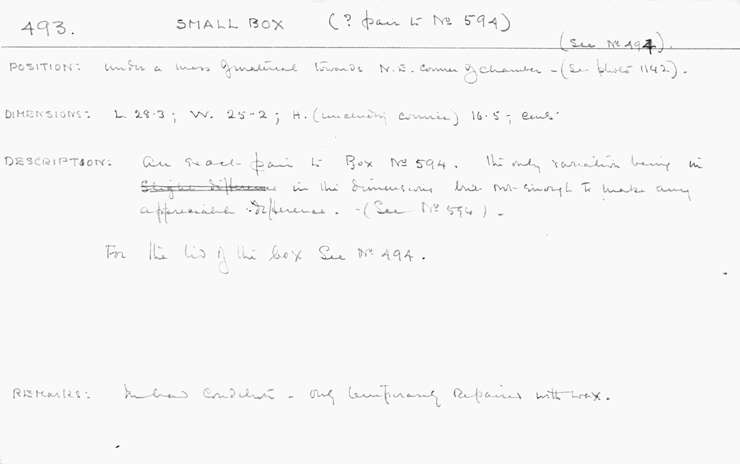 493. SMALL BOX (? pair to No 594)
(See No 494).
POSITION: under a mass of material towards N.E. corner of chamber - (See photo 1142).
DIMENSIONS: L 28.3; W. 25.2; H. (including cornice) 16.5; cms.
DESCRIPTION: An exact pair to Box No 594. The only variation being in
slight difference in the dimensions but not enough to make any
appreciable difference. - (See No 594) -
For the lid of the box See No 494.
REMARKS: In bad condition - only temporarily repaired with wax.